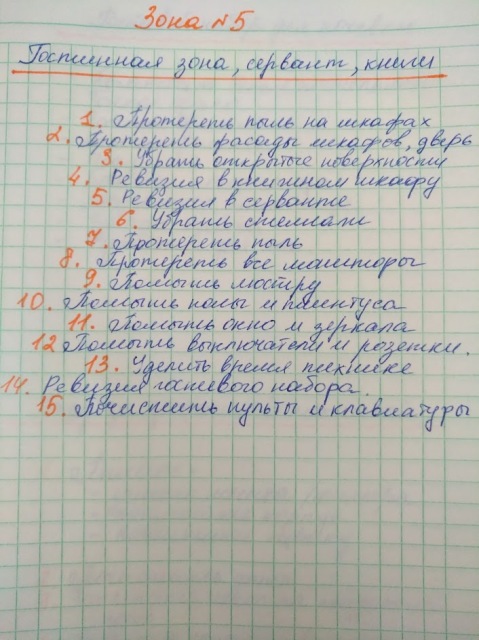 Зона №5
Гостинная зона, сервант, книги
1. Протереть пыль на шкафах
2. Протереть фасады шкафов, дверь
3. Убрать открытые поверхности
4. Ревизия в книжном шкафу
5. Ревизия в серванте
6. Убрать стеллаж
7. Протереть пыль
8. Протереть все мониторы
9. Помыть люстру
10. Помыть полы и плинтуса
11. Помыть окно и зеркала
12 Помыть выключатели и розетки.
13. Уделить время технике
14. Ревизия гостевого набора.
15. Почистить пульты и клавиатуры